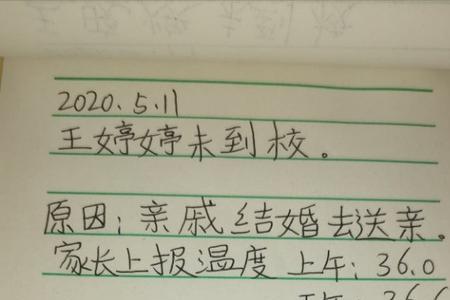 2020.5.11
王婷婷未到校。
原因：亲戚结婚去送亲。
家长上报温度 上午：36.0